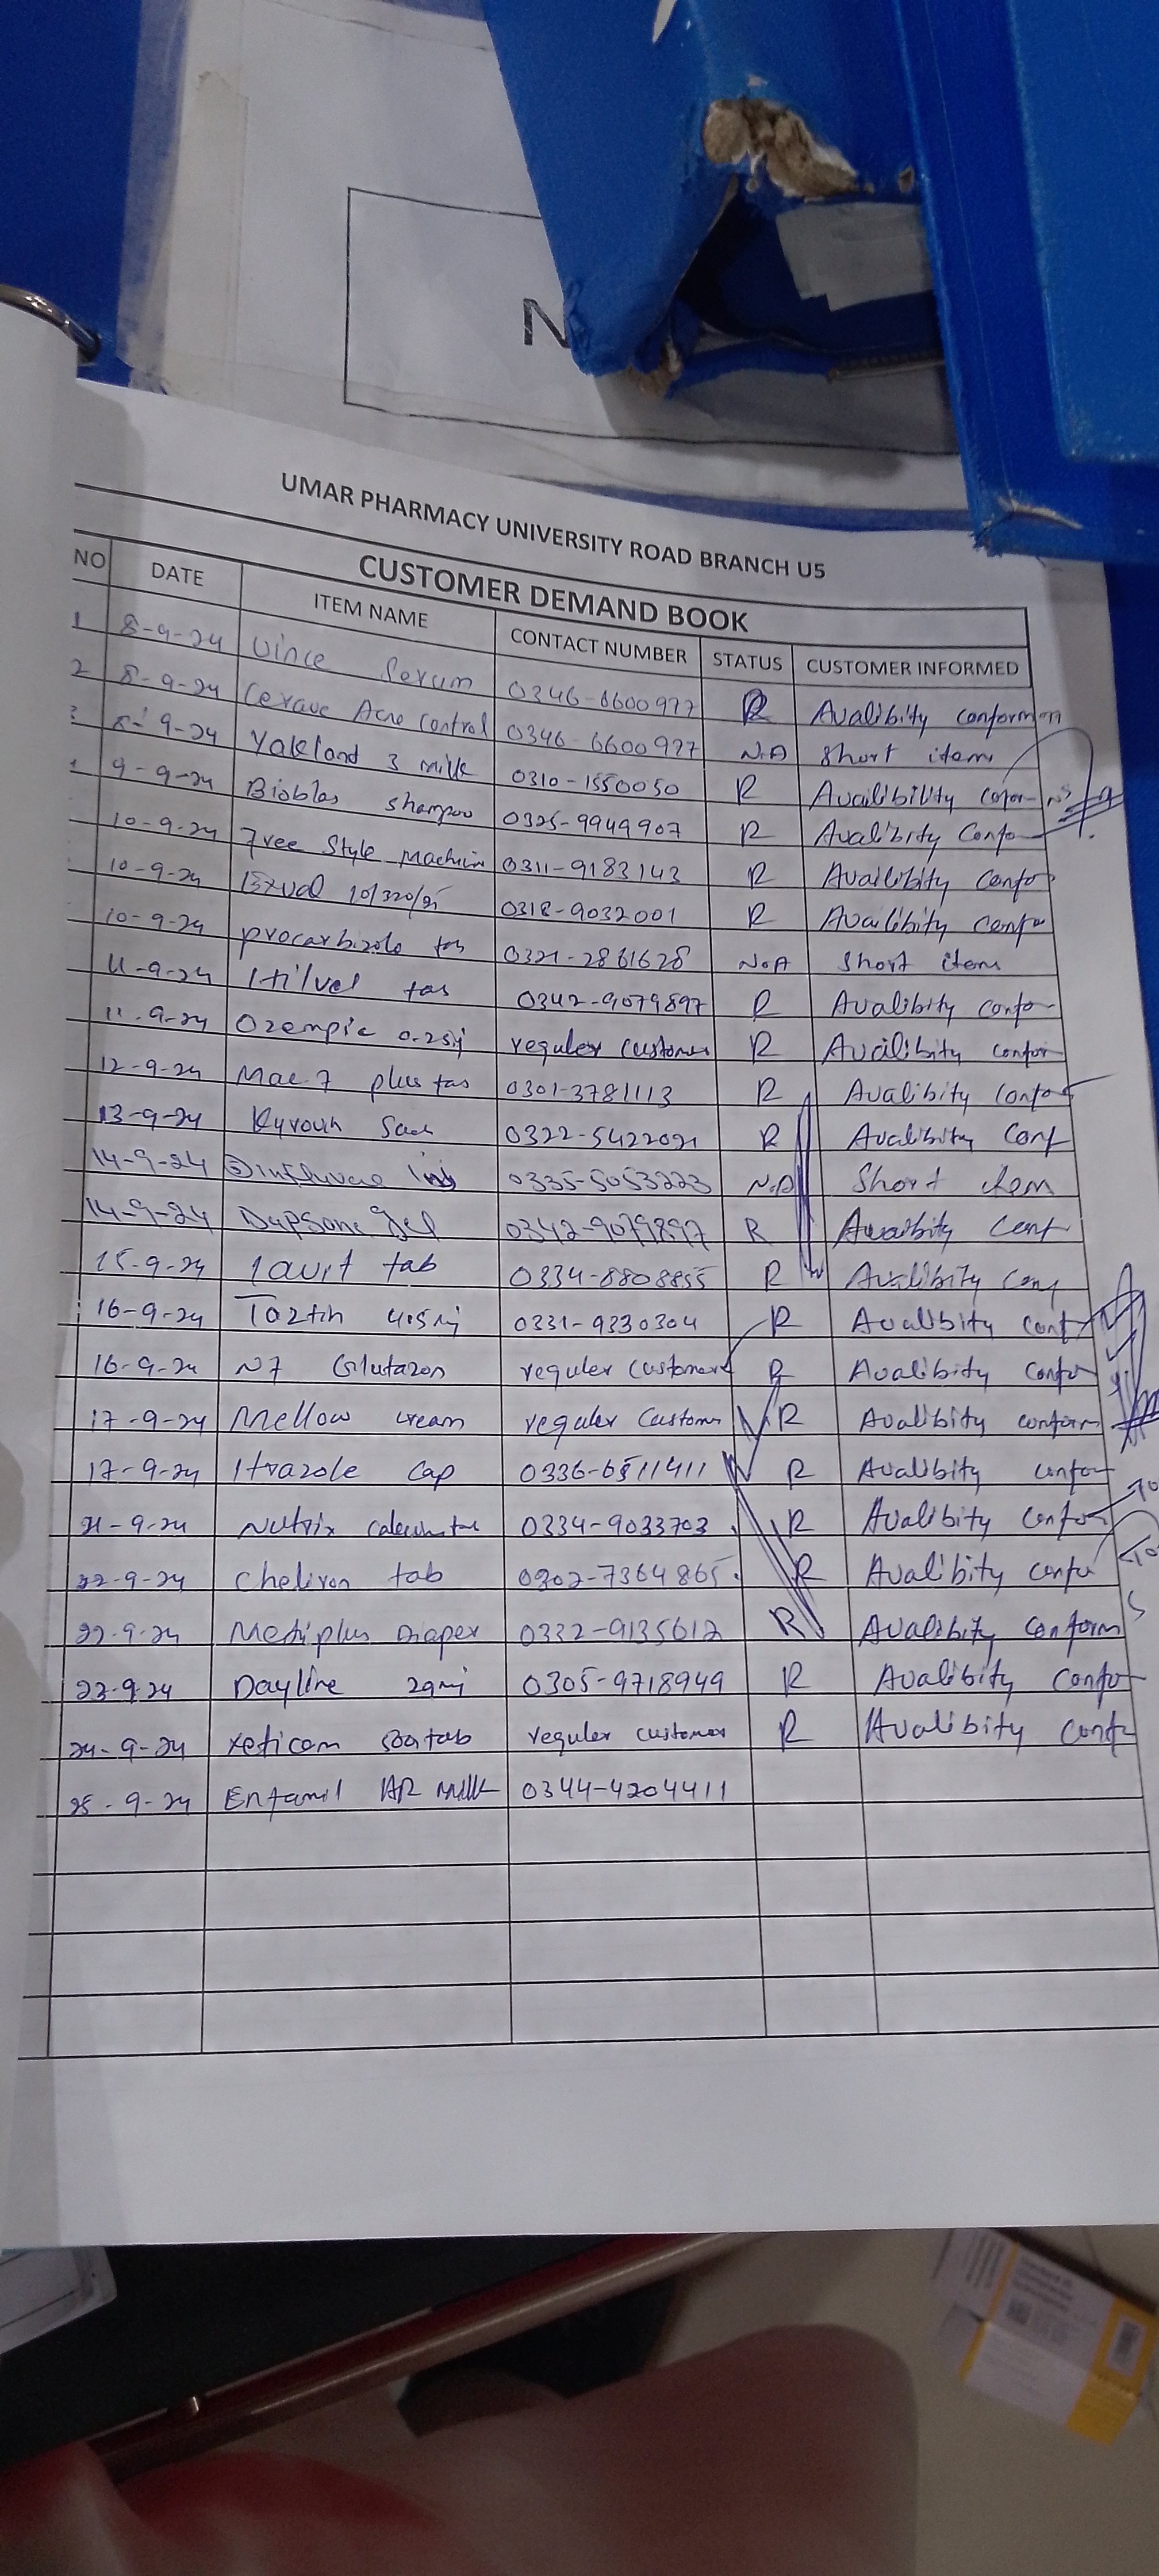 N
UMAR PHARMACY UNIVERSITY ROAD BRANCH U5
CUSTOMER DEMAND BOOK
NO DATE ITEM NAME CONTACT NUMBER STATUS CUSTOMER INFORMED
1 8-9-24 Vince Serum 0346-6600977 R Avalibity conform
2 8-9-24 Cerave Acne control 0346-6600977 N.A Short item
3 8-9-24 Yakland 3 milk 0310-1550050 R Avalibility
9-9-24 Bioblas shampoo 0325-9949907 R Avalibity Confo
10-9-24 Free Style Machin 0311-9183143 R Availibity Confo
10-9-24 Exval 10/320/25 0318-9032001 R Availibity Confo
10-9-24 procarbizole tab 0321-2861628 N.A Short item
11-9-24 Itilvel tab 0342-9079897 R Avalibity confo
11-9-24 Ozempic 0.25mg reguler customer R Avalibity confor
12-9-24 Mac 7 plus tab 0301-3781113 R Avalibity Confo
13-9-24 Sach 0322-5422021 R Avalibity Conf
14-9-24 Inj 0335-5053223 N.A Short item
14-9-24 Dapsone gel 0342-9079897 R Avalbity Conf
15-9-24 tab 0334-8808855 R Avalibity Conf
16-9-24 4.05mg 0331-9330304 R Avalibity conf
16-9-24 N7 Glutazon reguler customer R Avalibity Confo
17-9-24 Mellow cream reguler Custom R Avalibity conform
17-9-24 Itrazole Cap 0336-6511411 R Avalibity confor
21-9-24 Nutrix 0334-9033703 R Avalibity Confo
22-9-24 Cheliron tab 0302-7364865 R Avalibity confo
22-9-24 Mediplus Diaper 0332-9135612 R Avalibity Conform
23-9-24 Dayline 2gm 0305-9718949 R Avalibity Confo
24-9-24 Xeticam tab reguler customer R Avalibity Conf
25-9-24 Enfamil AR Milk 0344-4204411